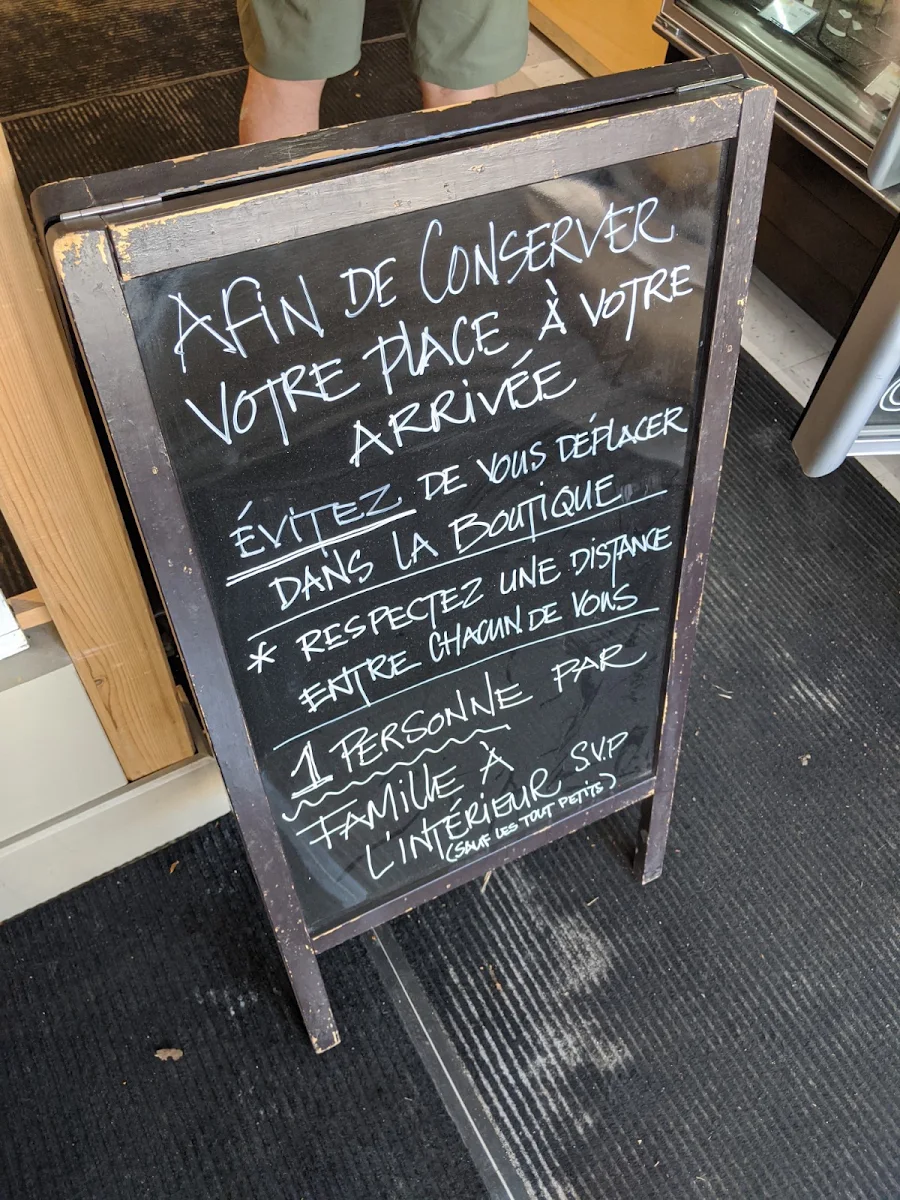 AFIN DE CONSERVER
VOTRE PLACE À VOTRE
ARRIVÉE
ÉVITEZ DE VOUS DÉPLACER
DANS LA BOUTIQUE
* RESPECTEZ UNE DISTANCE
ENTRE CHACUN DE VOUS
1 PERSONNE PAR
FAMILLE À
L'INTÉRIEUR S.V.P
(SAUF LES TOUT PETITS)